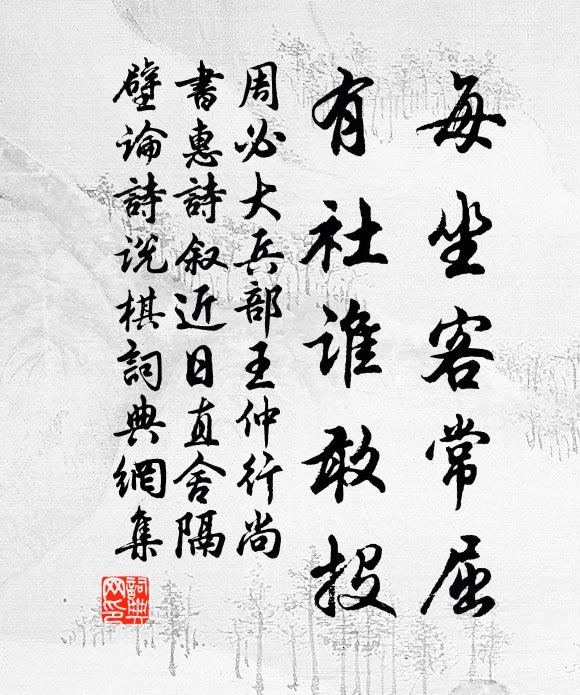 每坐客常屈
有社谁敢投
周必大兵部王仲行尚
書惠詩叙近日直舍隔
壁论詩说棋詞典網集
詞典
网印